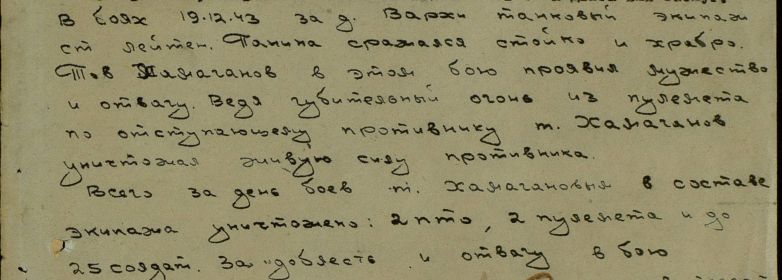 В боях 19.12.43 за д. Вархи танковый экипаж
ст лейтен. Панина сражался стойко и храбро.
Тов Хамаганов в этом бою проявил мужество
и отвагу. Ведя губительный огонь из пулемета
по отступающему противнику т. Хамаганов
уничтожал живую силу противника.
Всего за день боев т. Хамагановым в составе
экипажа уничтожено: 2 пто, 2 пулемета и до
25 солдат. За доблесть и отвагу в бою